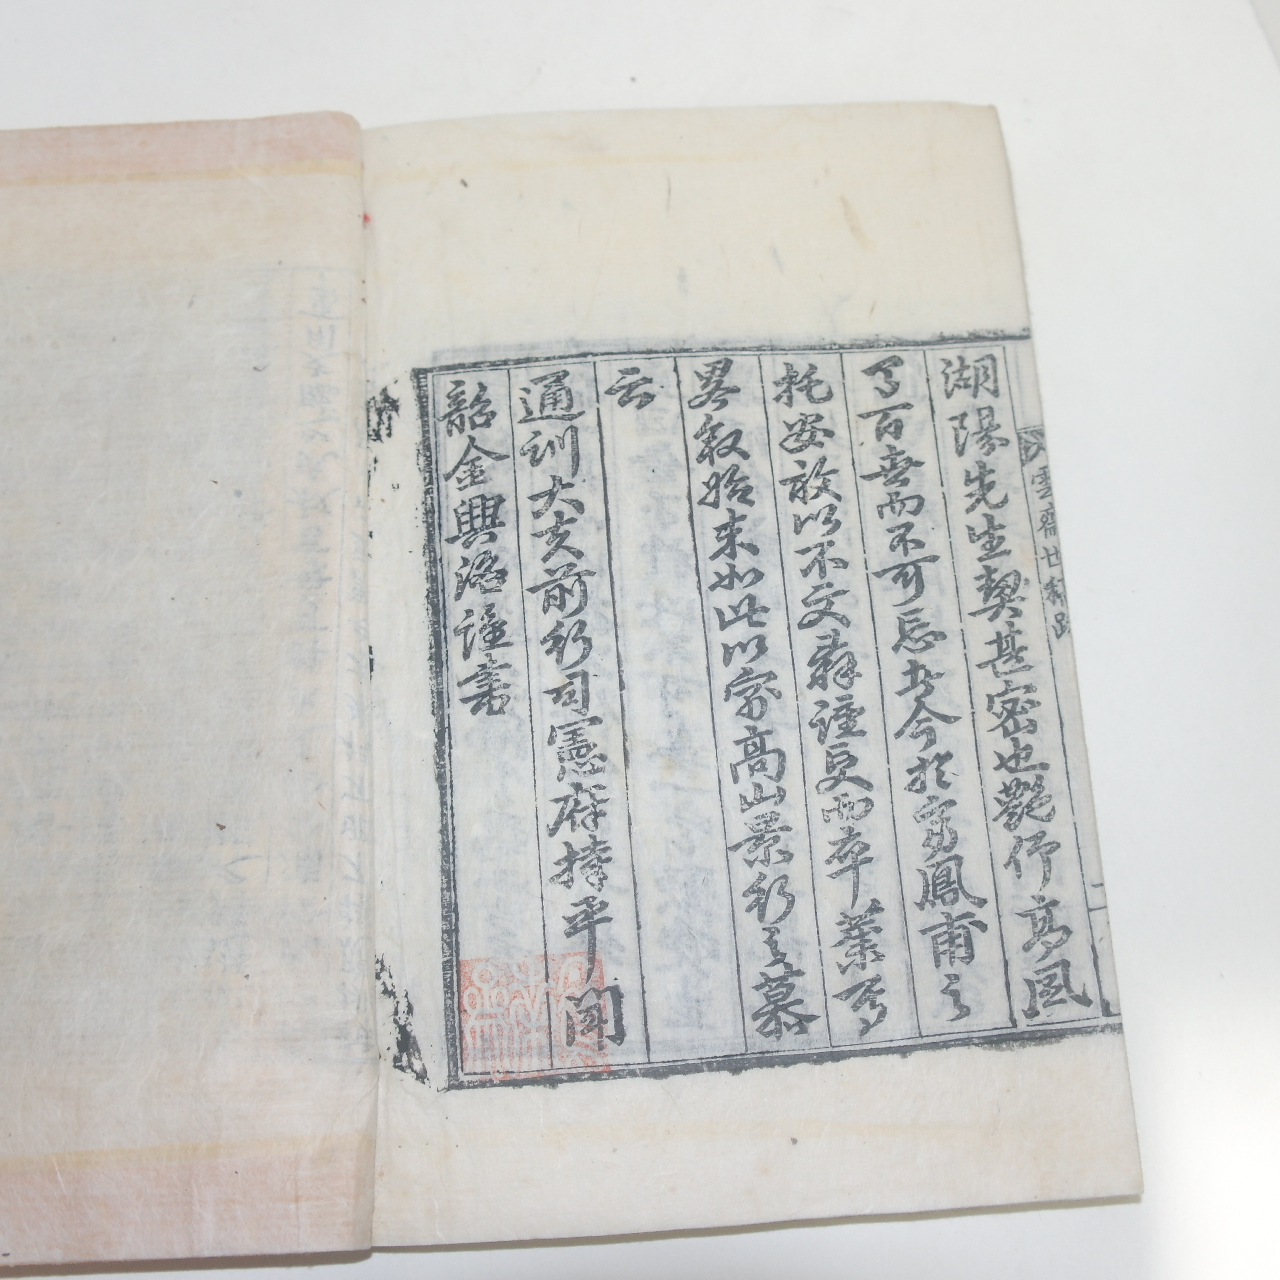 湖陽先生契甚密也艷佇高風
了百無而不可忘者今於寯鳳甫之
托安敢以不文辭謹更而卒業焉
畧敘始末如此以寓高山景行之慕
云
通訓大夫前行司憲府持平 聞
韶金興洛謹書
雲齋世稿跋